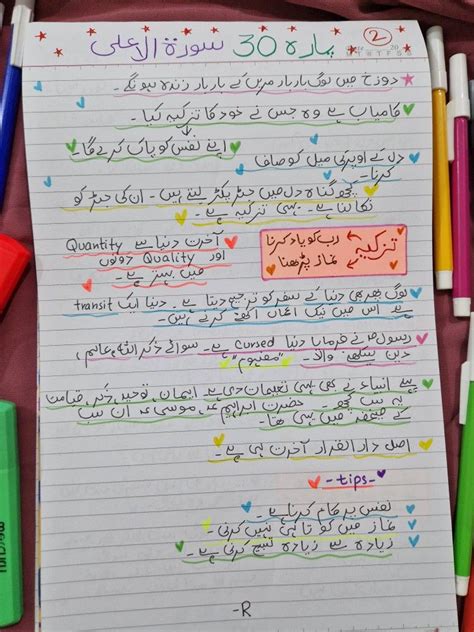 2
پارہ 30 سورۃ الاعلی
دوزخ میں لوگ بار بار مریں گے بار بار زندہ ہونگے۔
کامیاب ہے وہ جس نے خود کا تزکیہ کیا۔
اپنے نفس کو پاک کرے گا۔
دل کے اوپر کی میل کو صاف
کرنا۔
کچھ گناہ دل میں جڑ پکڑ لیتے ہیں۔ ان کی جڑ کو
نکالنا ہے۔ یہی تزکیہ ہے۔
تزکیہ رب کو یاد کرنا
نماز پڑھنا
آخرت دنیا سے Quantity
اور Quality دونوں
میں بہتر ہے۔
لوگ پھر بھی دنیا کے سفر کو ترجیح دیتا ہے۔ دنیا ایک transit
ہے اس میں نیک اعمال اکٹھے کرنے ہیں۔
رسولؐ نے فرمایا دنیا cursed ہے۔ سوائے ذکر اللہ، عالم،
دین سیکھنے والا۔ "مفہوم"
پہلے انبیاء نے بھی یہی تعلیمات دی ہے ایمان، توحید، قیامت
یہ سب کچھ۔ حضرت ابراہیم، موسیٰ ان سب
کے صحیفہ میں یہی تھا۔
اصل دار القرار آخرت ہی ہے۔
-tips-
نفس پر کام کرنا ہے۔
نماز میں کوتاہی نہیں کرنی۔
زیادہ سے زیادہ تسبیح کرنی ہے۔
-R